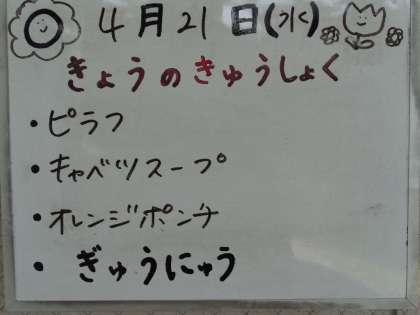 4月21日(水)
きょうのきゅうしょく
・ピラフ
・キャベツスープ
・オレンジポンチ
・ぎゅうにゅう